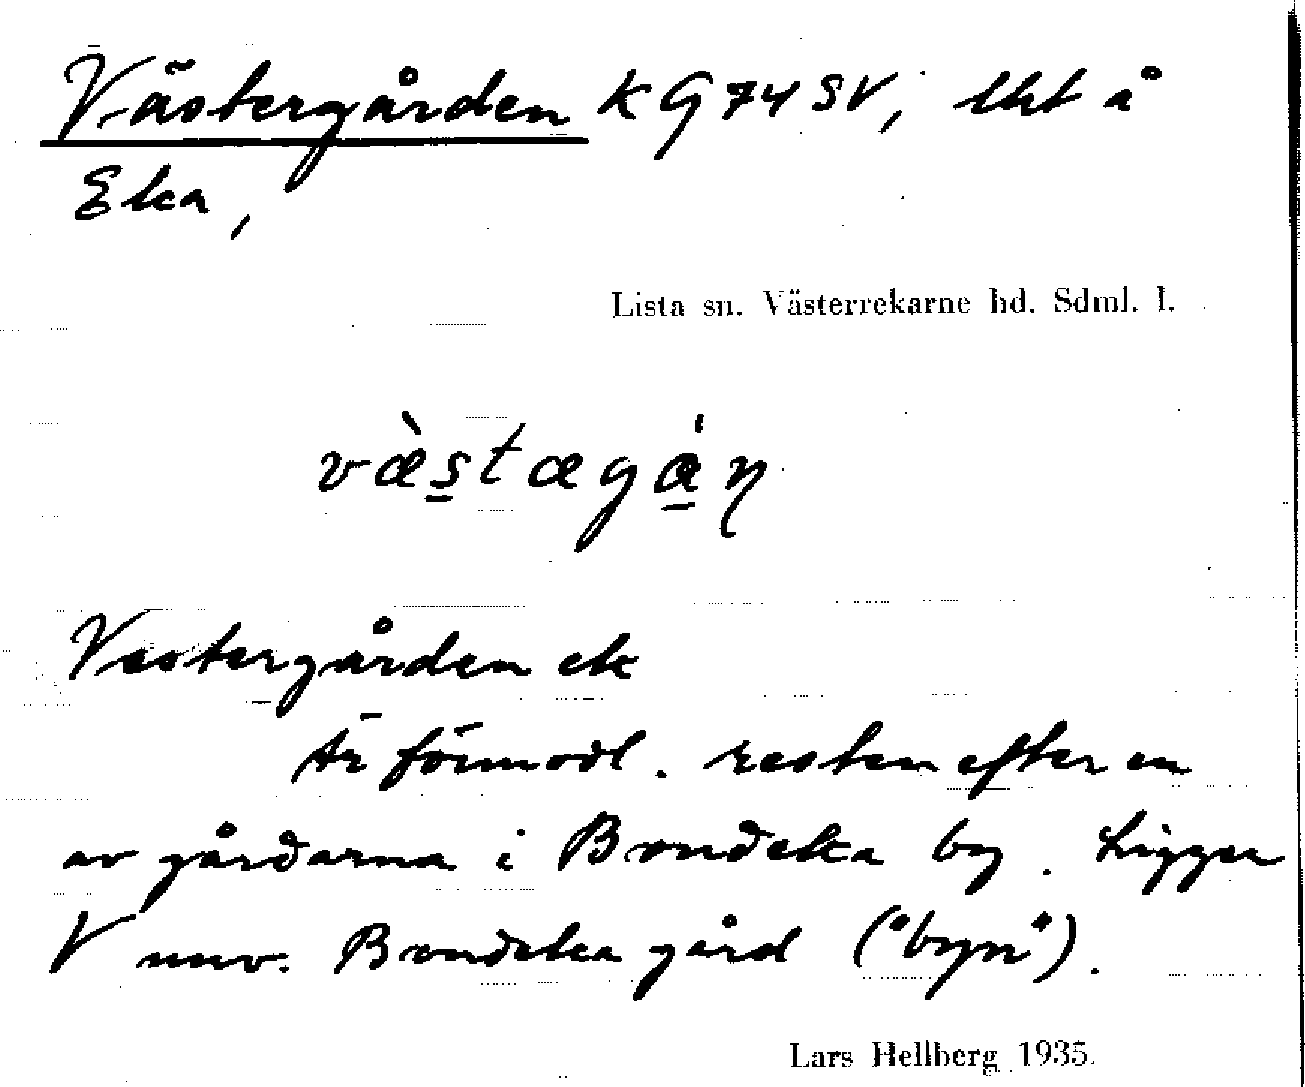 Västergården K G74SV, lht å
Eka,
Lista sn. Västerrekarne hd. Sdml. l.
væ̀s̲tægá̲ꞃ
Vestergården ek
Är förmodl. resten efter en
av gårdarna i Bondeka by. Ligger
V nuv. Bondeka gård ("byn").
Lars Hellberg 1935.